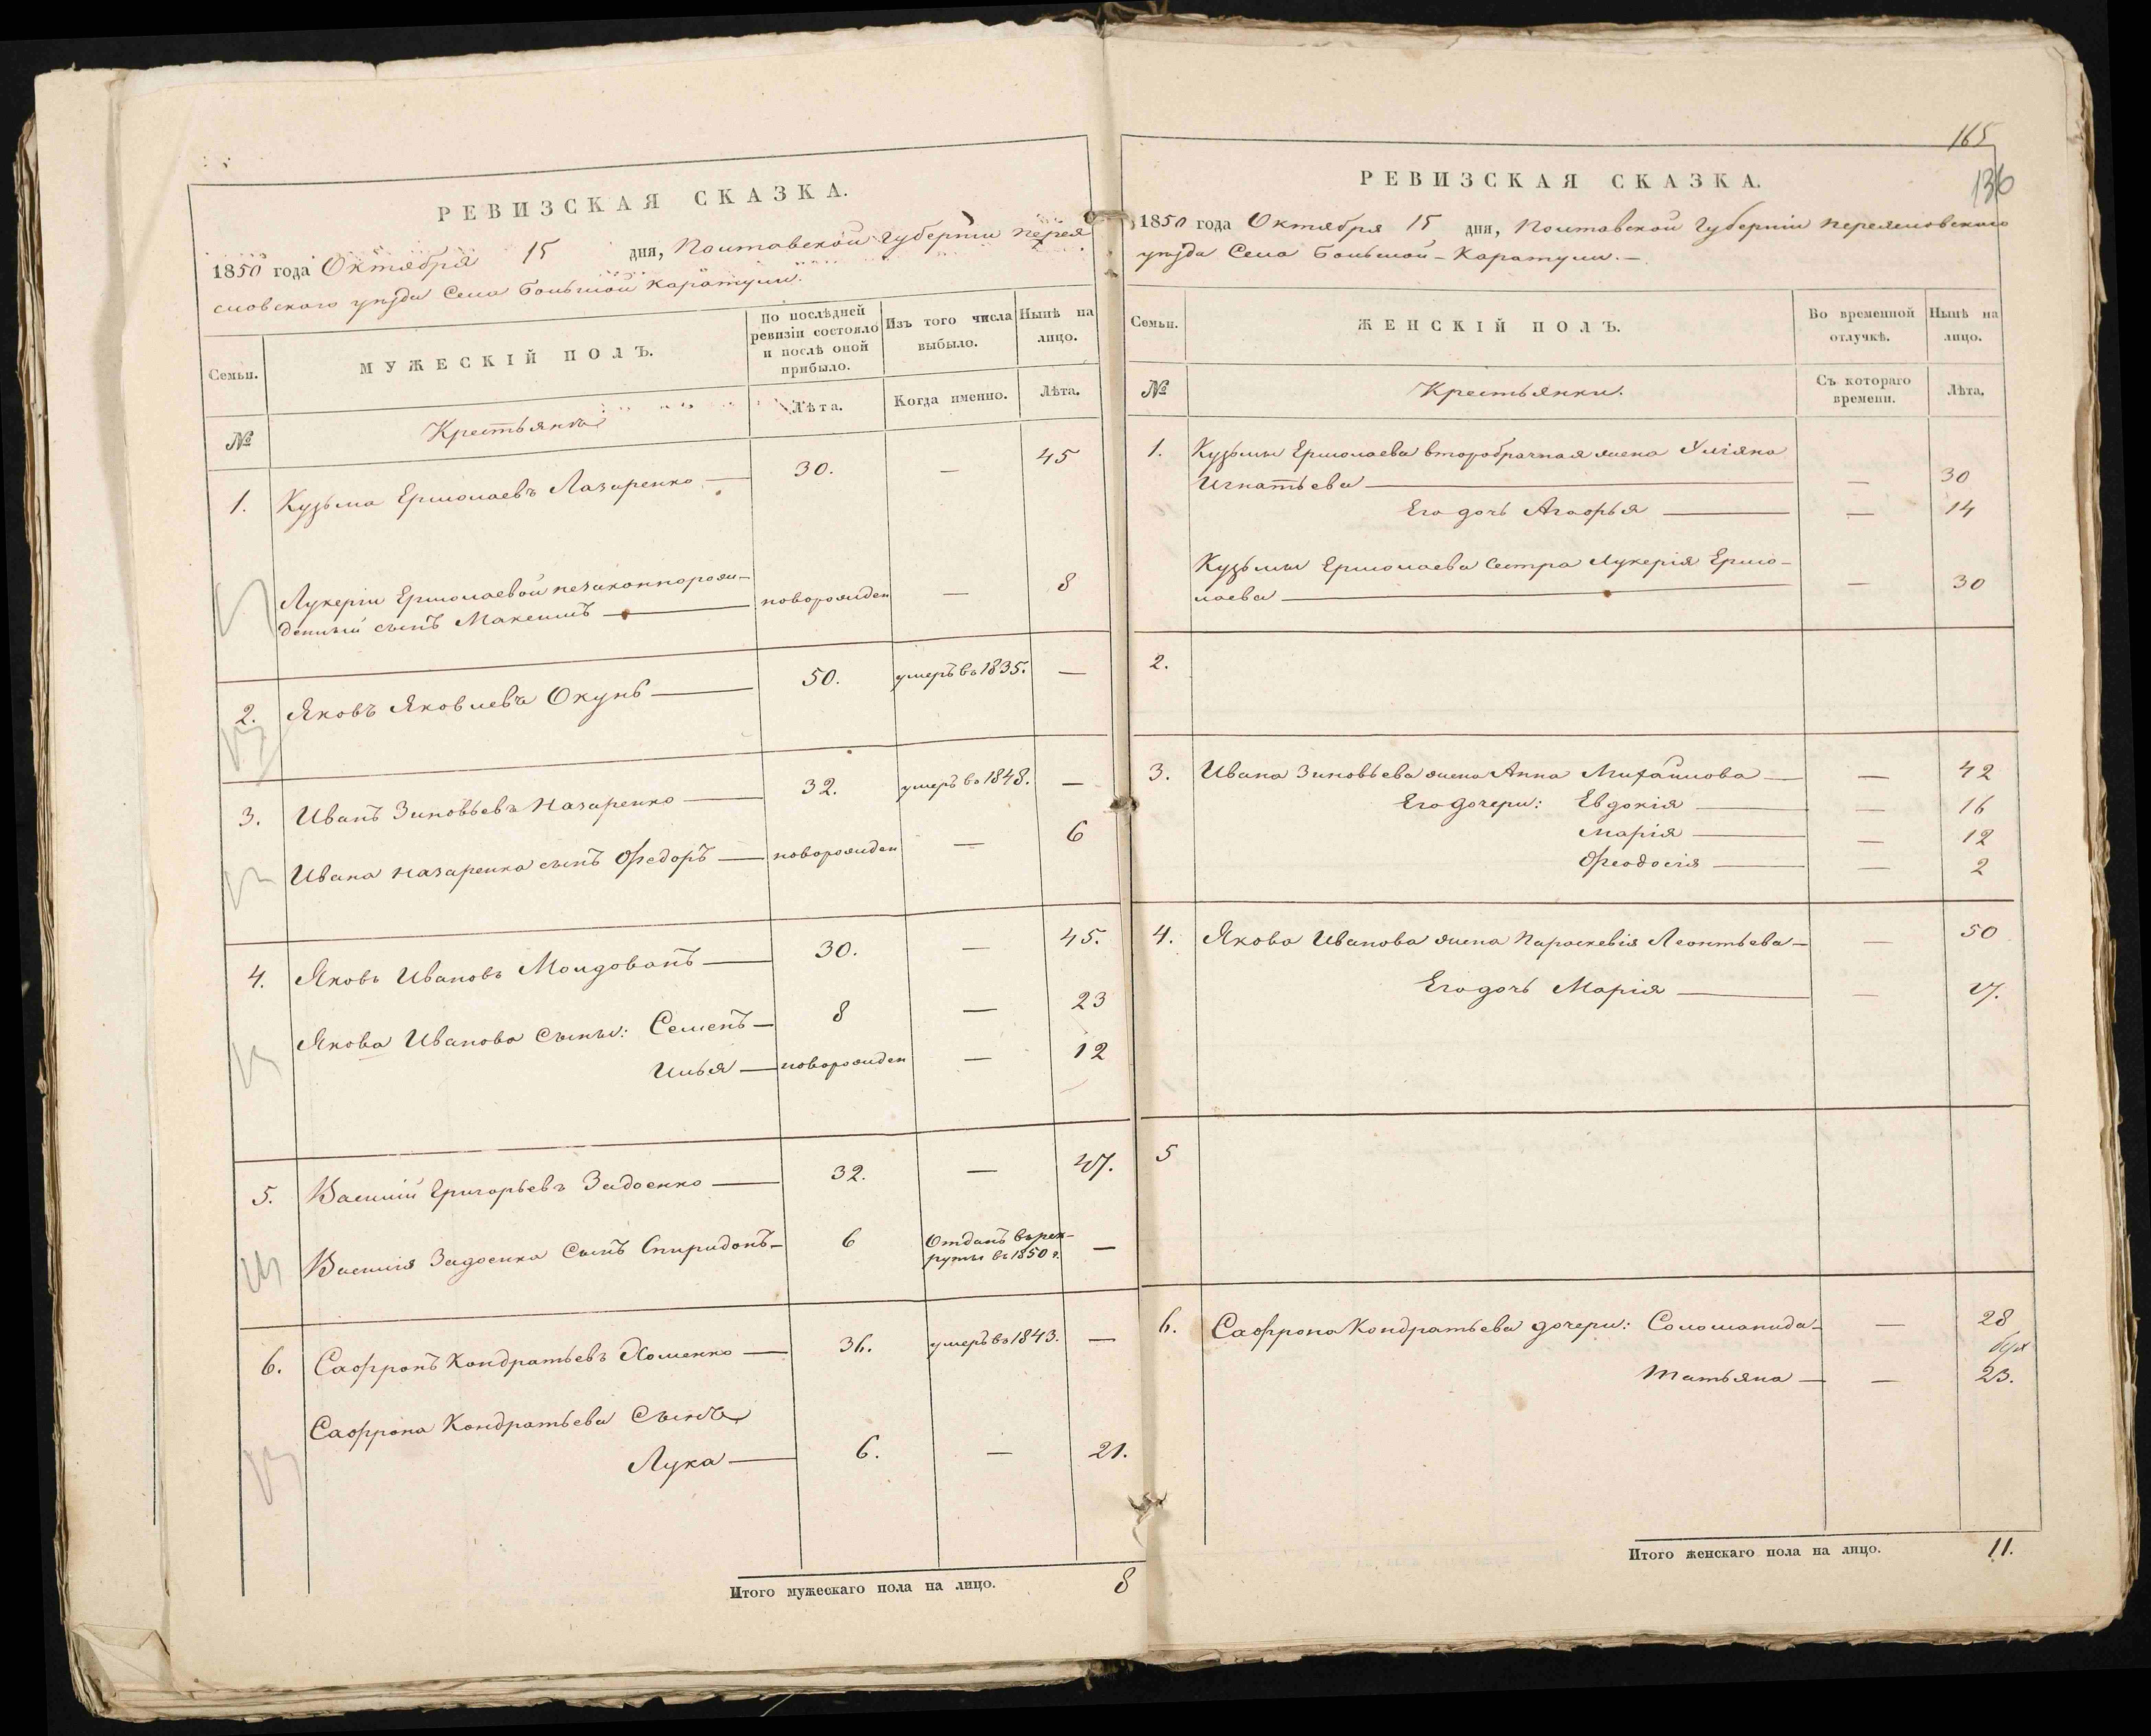 РЕВИЗСКАЯ СКАЗКА.
1850 года Октября 15 дня, Полтавской Губерніи Перея
словского уѣзда Села Большой Каратули.
Семьи.
МУЖЕСКІЙ ПОЛЪ.
По послѣдней
ревизіи состояло
и послѣ оной
прибыло.
Изъ того числа
выбыло.
Нынѣ на
лицо.
№
Крестьяне
Лѣта.
Когда именно.
Лѣта.
1. Кузьма Ермолаевъ Лазаренко — 30. — 45
Лукеріи Ермолаевой незаконнорож-
денный сынъ Максимъ — новорожден — 8
2. Яковъ Яковлевъ Окунь — 50. умеръ въ 1835. —
3. Иванъ Зиновьевъ Назаренко — 32. умеръ въ 1848. —
Ивана Назаренка сынъ Ѳедоръ — новорожден — 6
4. Яковъ Ивановъ Молдованъ — 30. — 45.
Якова Иванова Сыны: Семенъ — 8 — 23
Илья — новорожден — 12
5. Василій Григорьевъ Задоенко — 32. — 47.
Василія Задоенка Сынъ Спиридонъ — 6 Отданъ въ рек-
руты въ 1850 г. —
6. Сафронъ Кондратьевъ Хоменко — 36. умеръ въ 1843. —
Сафрона Кондратьева Сынъ
Лука — 6. — 21.
Итого мужескаго пола на лицо. 8
165
136
РЕВИЗСКАЯ СКАЗКА.
1850 года Октября 15 дня, Полтавской Губерніи Переясловского
уѣзда Села Большой-Каратули. —
Семьи.
ЖЕНСКІЙ ПОЛЪ.
Во временной
отлучкѣ.
Нынѣ на
лицо.
№
Крестьянки.
Съ котораго
времени.
Лѣта.
1. Кузьмы Ермолаева второбрачная жена Уліяна
Игнатьева — — 30
Его дочь Агафья — — 14
Кузьмы Ермолаева Сестра Лукерія Ермо-
лаева — — 30
2.
3. Ивана Зиновьева жена Анна Михайлова — — 42
Его дочери: Евдокія — — 16
Марія — — 12
Ѳеодосія — — 2
4. Якова Иванова жена Параскевія Леонтьева — — 50
Его дочь Марія — — 17.
5
6. Сафрона Кондратьева дочери: Соломанида — — 28
Татьяна — — 23.
Итого женскаго пола на лицо. 11.